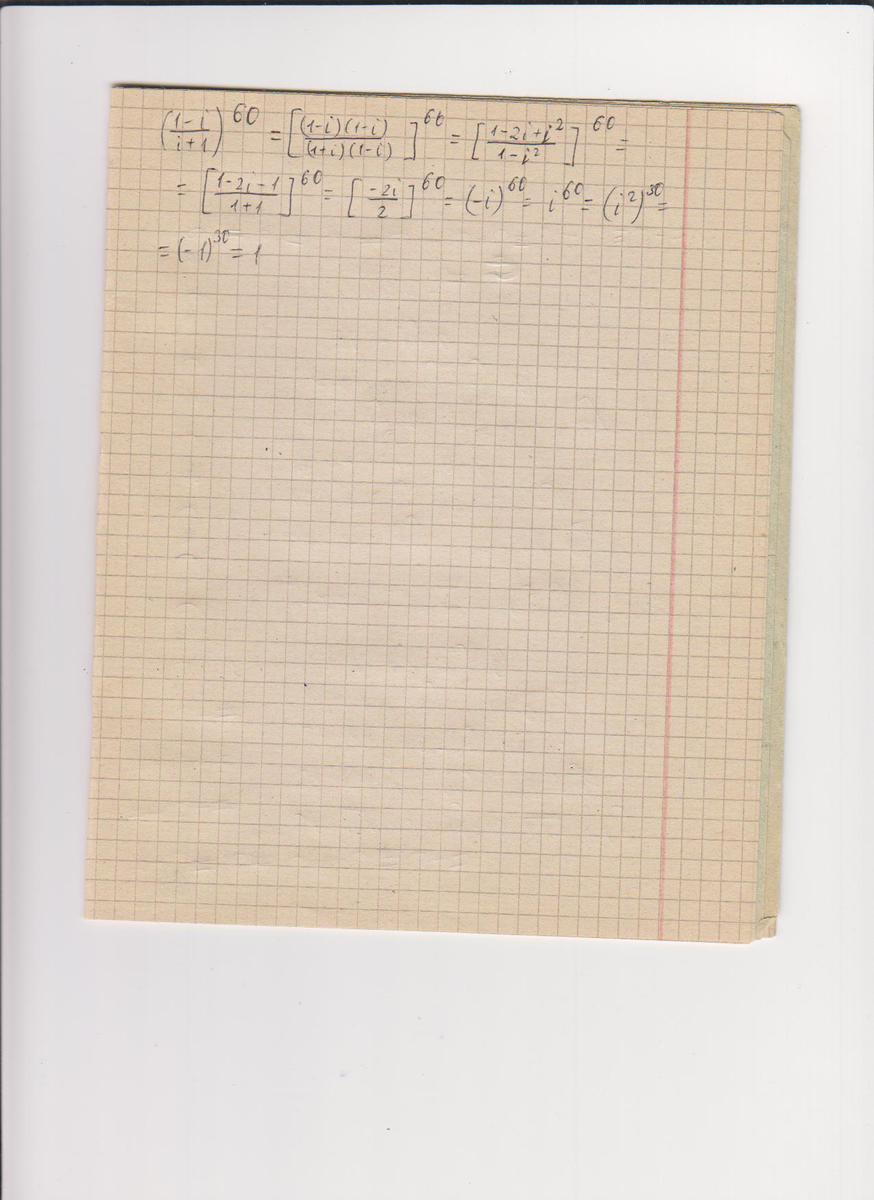 (\frac{1-i}{i+1})^{60} = [\frac{(1-i)(1-i)}{(1+i)(1-i)}]^{60} = [\frac{1-2i+i^2}{1-i^2}]^{60} =
= [\frac{1-2i-1}{1+1}]^{60} = [\frac{-2i}{2}]^{60} = (-i)^{60} = i^{60} = (i^2)^{30} =
= (-1)^{30} = 1